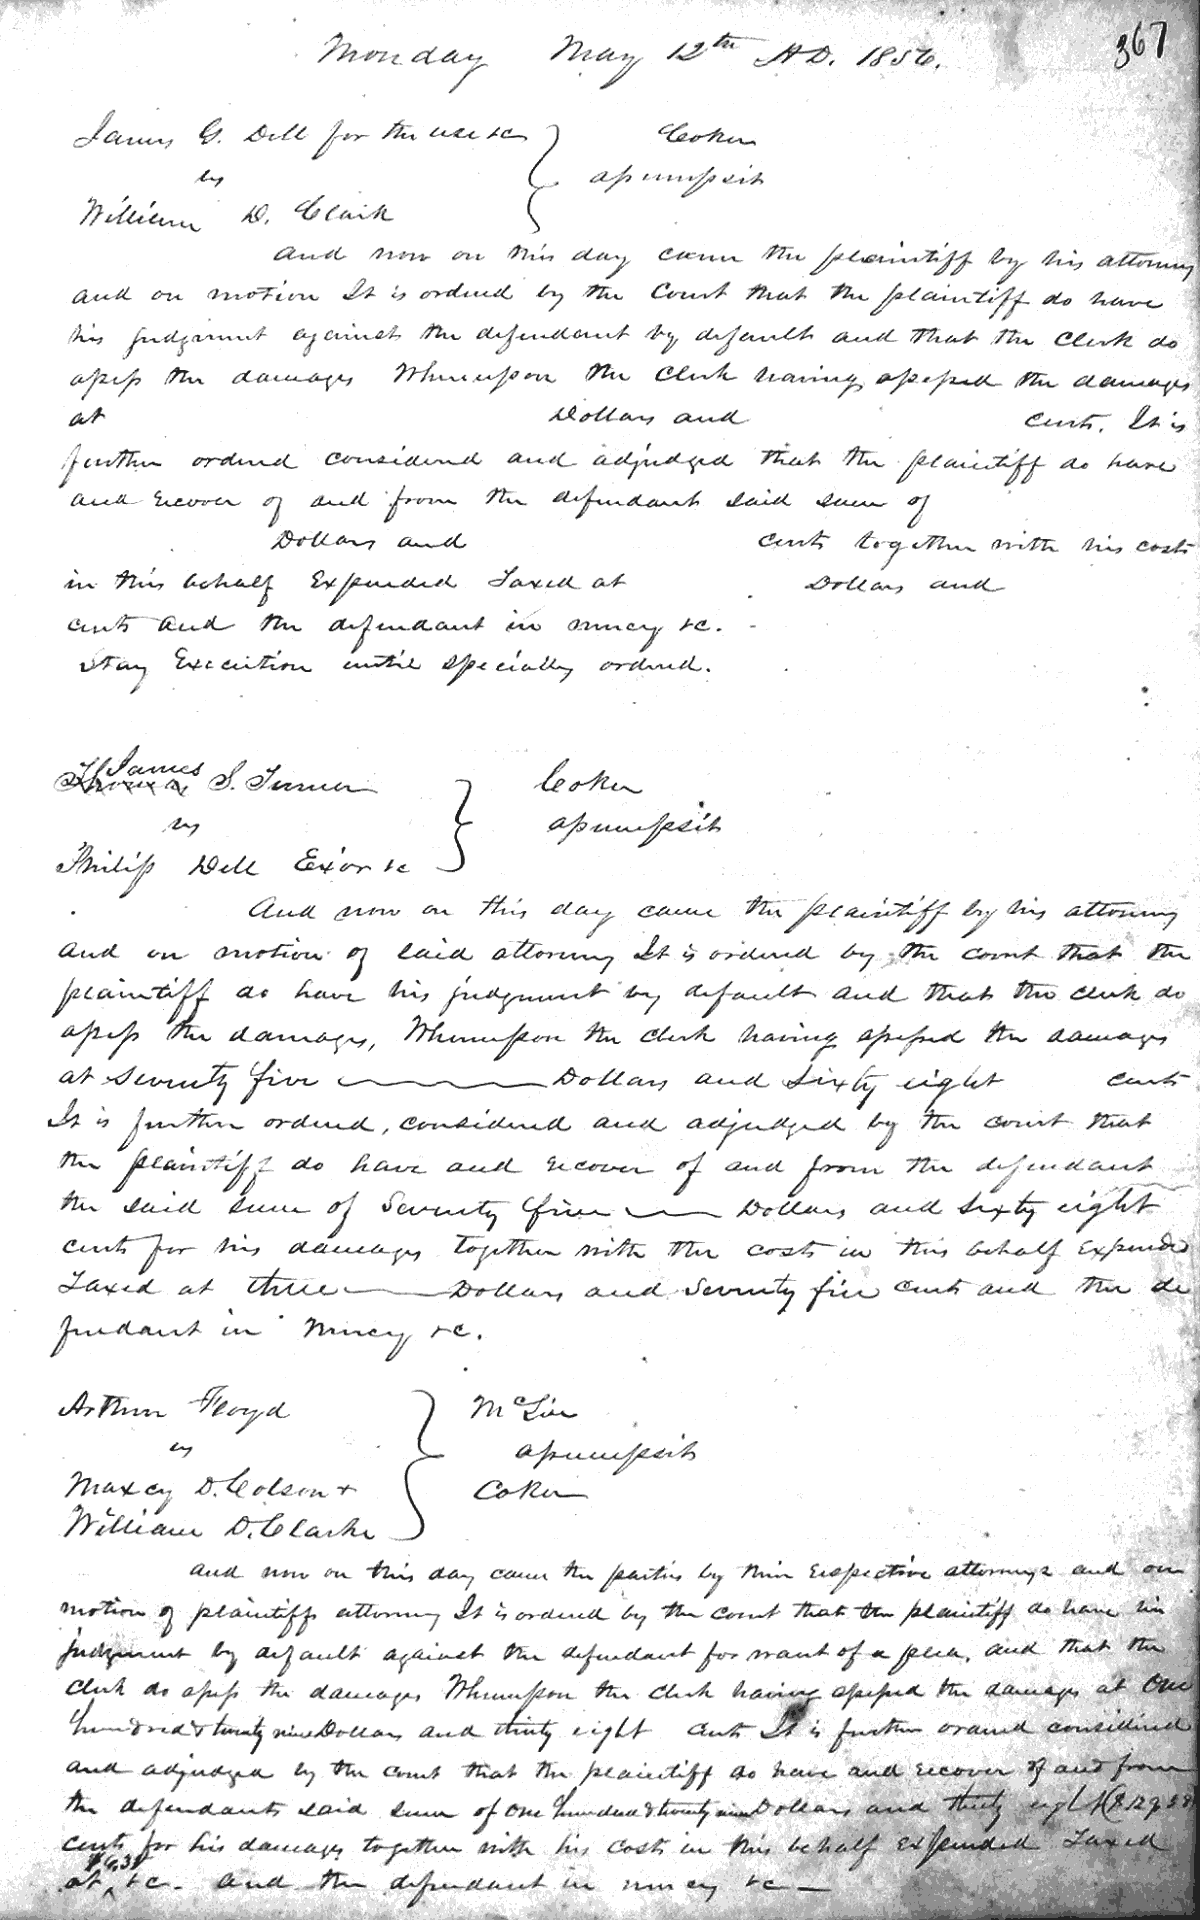 367
Monday May 12th A.D. 1856.
James G. Dell for the use &c } Coker
vs assumpsit
William D. Clark
And now on this day came the plaintiff by his attorney
and on motion It is ordered by the Court that the plaintiff do have
his judgment against the defendant by default and that the Clerk do
assess the damages Whereupon the Clerk having assessed the damages
at Dollars and cents. It is
further ordered considered and adjudged that the plaintiff do have
and recover of and from the defendant said sum of
Dollars and cents together with his costs
in this behalf Expended Taxed at Dollars and
cents and the defendant in mercy &c.
Stay Execution until specially ordered.
James
Thomas S. Turner } Coker
vs assumpsit
Philip Dell Ex'or &c
And now on this day came the plaintiff by his attorney
and on motion of said attorney It is ordered by the court that the
plaintiff do have his judgment by default and that the clerk do
assess the damages, Whereupon the clerk having assessed the damages
at Seventy five Dollars and Sixty eight cents
It is further ordered, considered and adjudged by the court that
the plaintiff do have and recover of and from the defendant
the said sum of Seventy five Dollars and Sixty eight
cents for his damages together with the costs in this behalf Expended
Taxed at three Dollars and Seventy five cents and the de
fendant in mercy &c.
Arthur Floyd } McLin
vs assumpsit
Maxcy D. Colson & Coker
William D. Clarke
And now on this day came the parties by their respective attorneys and on
motion of plaintiffs attorney It is ordered by the court that the plaintiff do have his
judgment by default against the defendant for want of a plea, and that the
clerk do assess the damages Whereupon the clerk having assessed the damages at One
hundred & twenty nine Dollars and thirty eight cents It is further ordered considered
and adjudged by the court that the plaintiff do have and recover of and from
the defendants said sum of One hundred & twenty nine Dollars and thirty eight ($129.38)
cents for his damages together with his costs in this behalf Expended Taxed
at &c. and the defendant in mercy &c